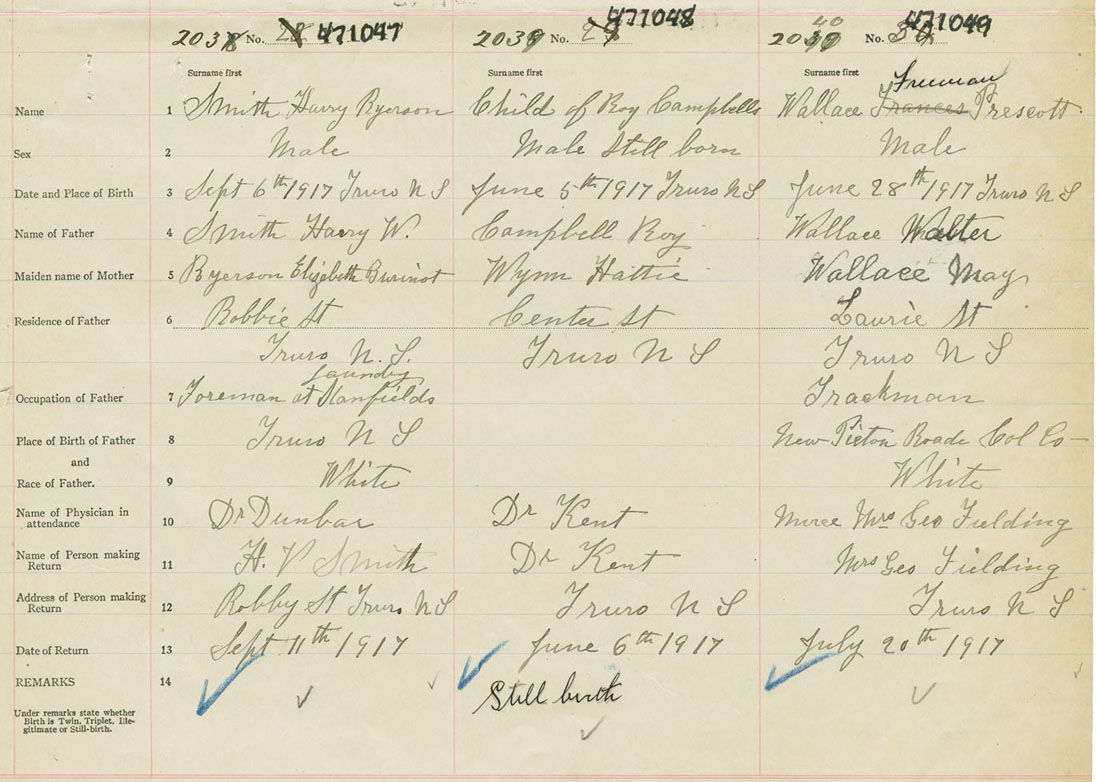 2038 No. 28 471047
2039 No. 29 471048
40
2030 No. 30 471049
Surname first
Surname first
Surname first
Freeman
Name 1 Smith Harry Ryerson Child of Roy Campbells Wallace Frances Prescott
Sex 2 Male Male Still born Male
Date and Place of Birth 3 Sept 6th 1917 Truro N S June 5th 1917 Truro N S June 28th 1917 Truro N S
Name of Father 4 Smith Harry W. Campbell Roy Wallace Walter
Maiden name of Mother 5 Ryerson Elizabeth Burinot Wynn Hattie Wallace May
Residence of Father 6 Robbie St Center St Laurie St
Truro N. S. Truro N S Truro N S
Laundry
Occupation of Father 7 Foreman at Stanfields Trackman
Place of Birth of Father 8 Truro N S New Picton Roade Col Co -
and
Race of Father. 9 White White
Name of Physician in
attendance 10 Dr Dunbar Dr Kent Nurse Mrs Geo Fielding
Name of Person making
Return 11 H. Smith Dr Kent Mrs Geo Fielding
Address of Person making
Return 12 Robby St Truro N S Truro N S Truro N S
Date of Return 13 Sept 11th 1917 June 6th 1917 July 20th 1917
REMARKS 14 Still birth
Under remarks state whether
Birth is Twin, Triplet, Ille-
gitimate or Still-birth.